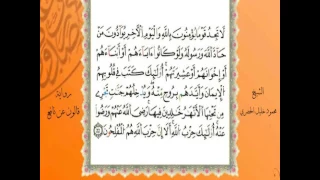 لَّا تَجِدُ قَوْمًا يُؤْمِنُونَ بِاللَّهِ وَالْيَوْمِ الْآخِرِ يُوَادُّونَ مَنْ
حَادَّ اللَّهَ وَرَسُولَهُ وَلَوْ كَانُوا ءَابَاءَهُمْ أَوْ أَبْنَاءَهُمْ
أَوْ إِخْوَانَهُمْ أَوْ عَشِيرَتَهُمْ أُوْلَئِكَ كَتَبَ فِي قُلُوبِهِمُ
الْإِيمَانَ وَأَيَّدَهُم بِرُوحٍ مِّنْهُ وَيُدْخِلُهُمْ جَنَّاتٍ تَجْرِي
مِن تَحْتِهَا الْأَنْهَارُ خَالِدِينَ فِيهَا رَضِيَ اللَّهُ عَنْهُمْ وَرَضُوا
عَنْهُ أُوْلَئِكَ حِزْبُ اللَّهِ أَلَا إِنَّ حِزْبَ اللَّهِ هُمُ الْمُفْلِحُونَ
الشيخ
محمود خليل الحصري
برواية
قالون عن نافع